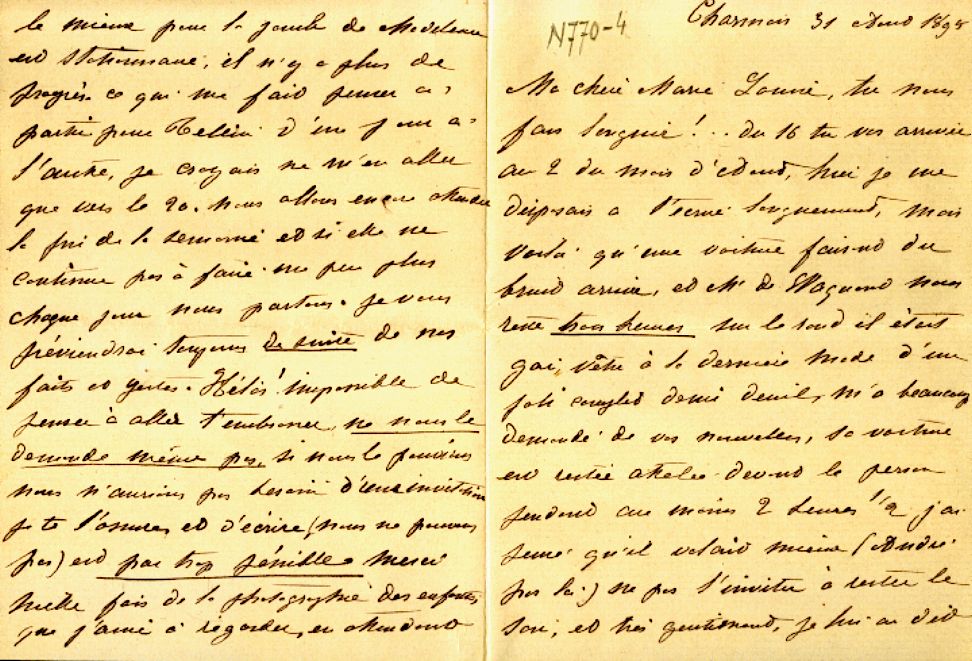 N770-4
Charmois 31 Aout 189
Ma chère Marie Louise, tu nous
fais languir!.. du 16 tu vas arriver
au 2 du mois d'Aout, hier je me
disposais a t'écrire longuement, mais
voila qu'une voiture faisant du
bruit arrive, et Mr de nous
reste trois heures sur le tard il était
gai, vêtu à la dernière mode d'un
joli complet demi deuil, m'a beaucoup
demandé de vos nouvelles, sa voiture
est restée attelée devant le perron
pendant au moins 2 heures 1/2, j'ai
pensé qu'il valait mieux (André
pas là) ne pas l'inviter à rester le
soir, et très gentiment, je lui ai dit
le mieux pour la jambe de Madeleine
est stationnaire, il n'y a plus de
progrès ce qui me fait penser a
partir pour d'un jour a
l'autre, je croyais ne m'en aller
que vers le 20. nous allons encore attendre
la fin de la semaine et si elle ne
continue pas à faire un peu plus
chaque jour nous partons. je vous
préviendrai toujours de suite de nos
faits et gestes. Hélas! impossible de
penser à aller t'embrasser, ne nous le
demande même pas, si nous le pouvions
nous n'aurions pas besoin d'une invitation
je te l'assure et d'écrire (nous ne pouvons
pas) est par trop pénible merci
mille fois de la photographie des enfants
que j'aime à regarder, en attendant